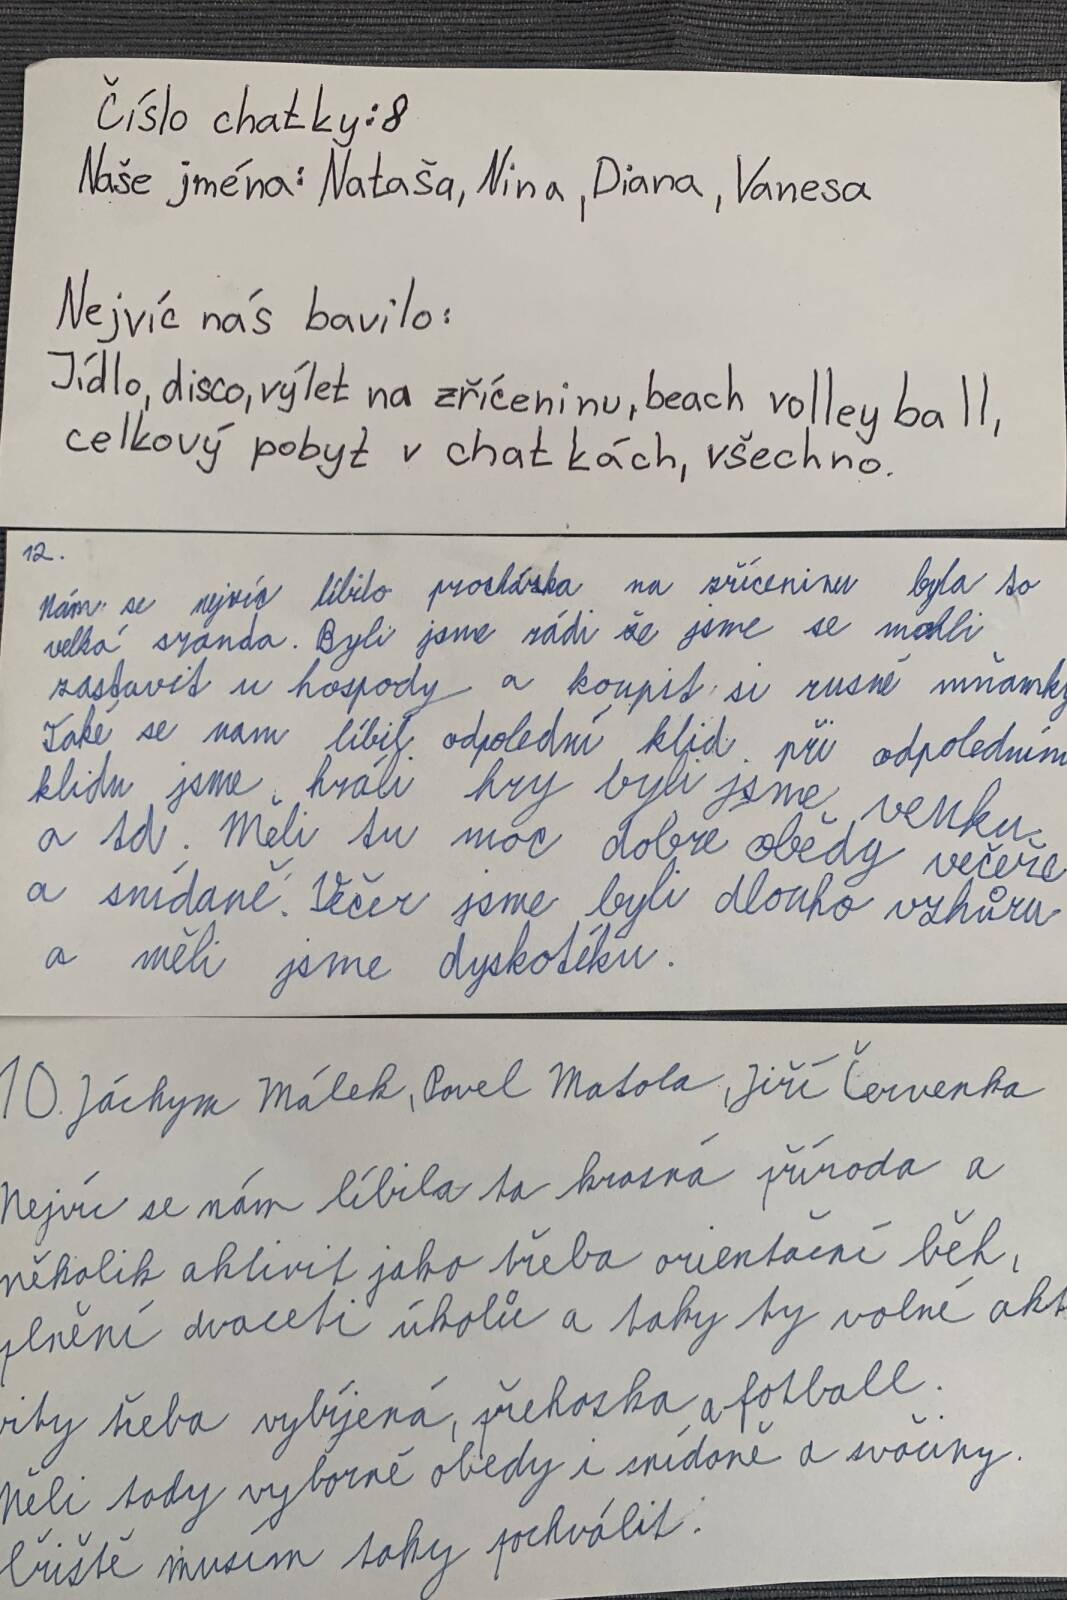 Číslo chatky: 8
Naše jména: Nataša, Nina, Diana, Vanesa
Nejvíc nás bavilo:
Jídlo, disco, výlet na zříceninu, beach volley ball,
celkový pobyt v chatkách, všechno.
12.
Nám se nejvíc líbilo procházka na zříceninu byla to
velká sranda. Byli jsme rádi že jsme se mohli
zastavit u hospody a koupit si rusné mňamky
Také se nam líbil odpolední klid při odpoledním
klidu jsme hráli hry byli jsme venku
a td. Měli tu moc dobre obědy večeře
a snídaně. Večer jsme byli dlouho vzhůru
a měli jsme dyskotéku.
10. Jáchym Málek, Pavel Matola, Jiří Červenka
Nejvíc se nám líbila ta krasná příroda a
několik aktivit jako třeba orientační běh,
plnění dvaceti úkolů a taky ty volné akt
vity třeba vybíjená, přehazka a fotball.
Měli tady vyborné obedy i snídaně a svačiny.
hřiště musím taky pochválit.